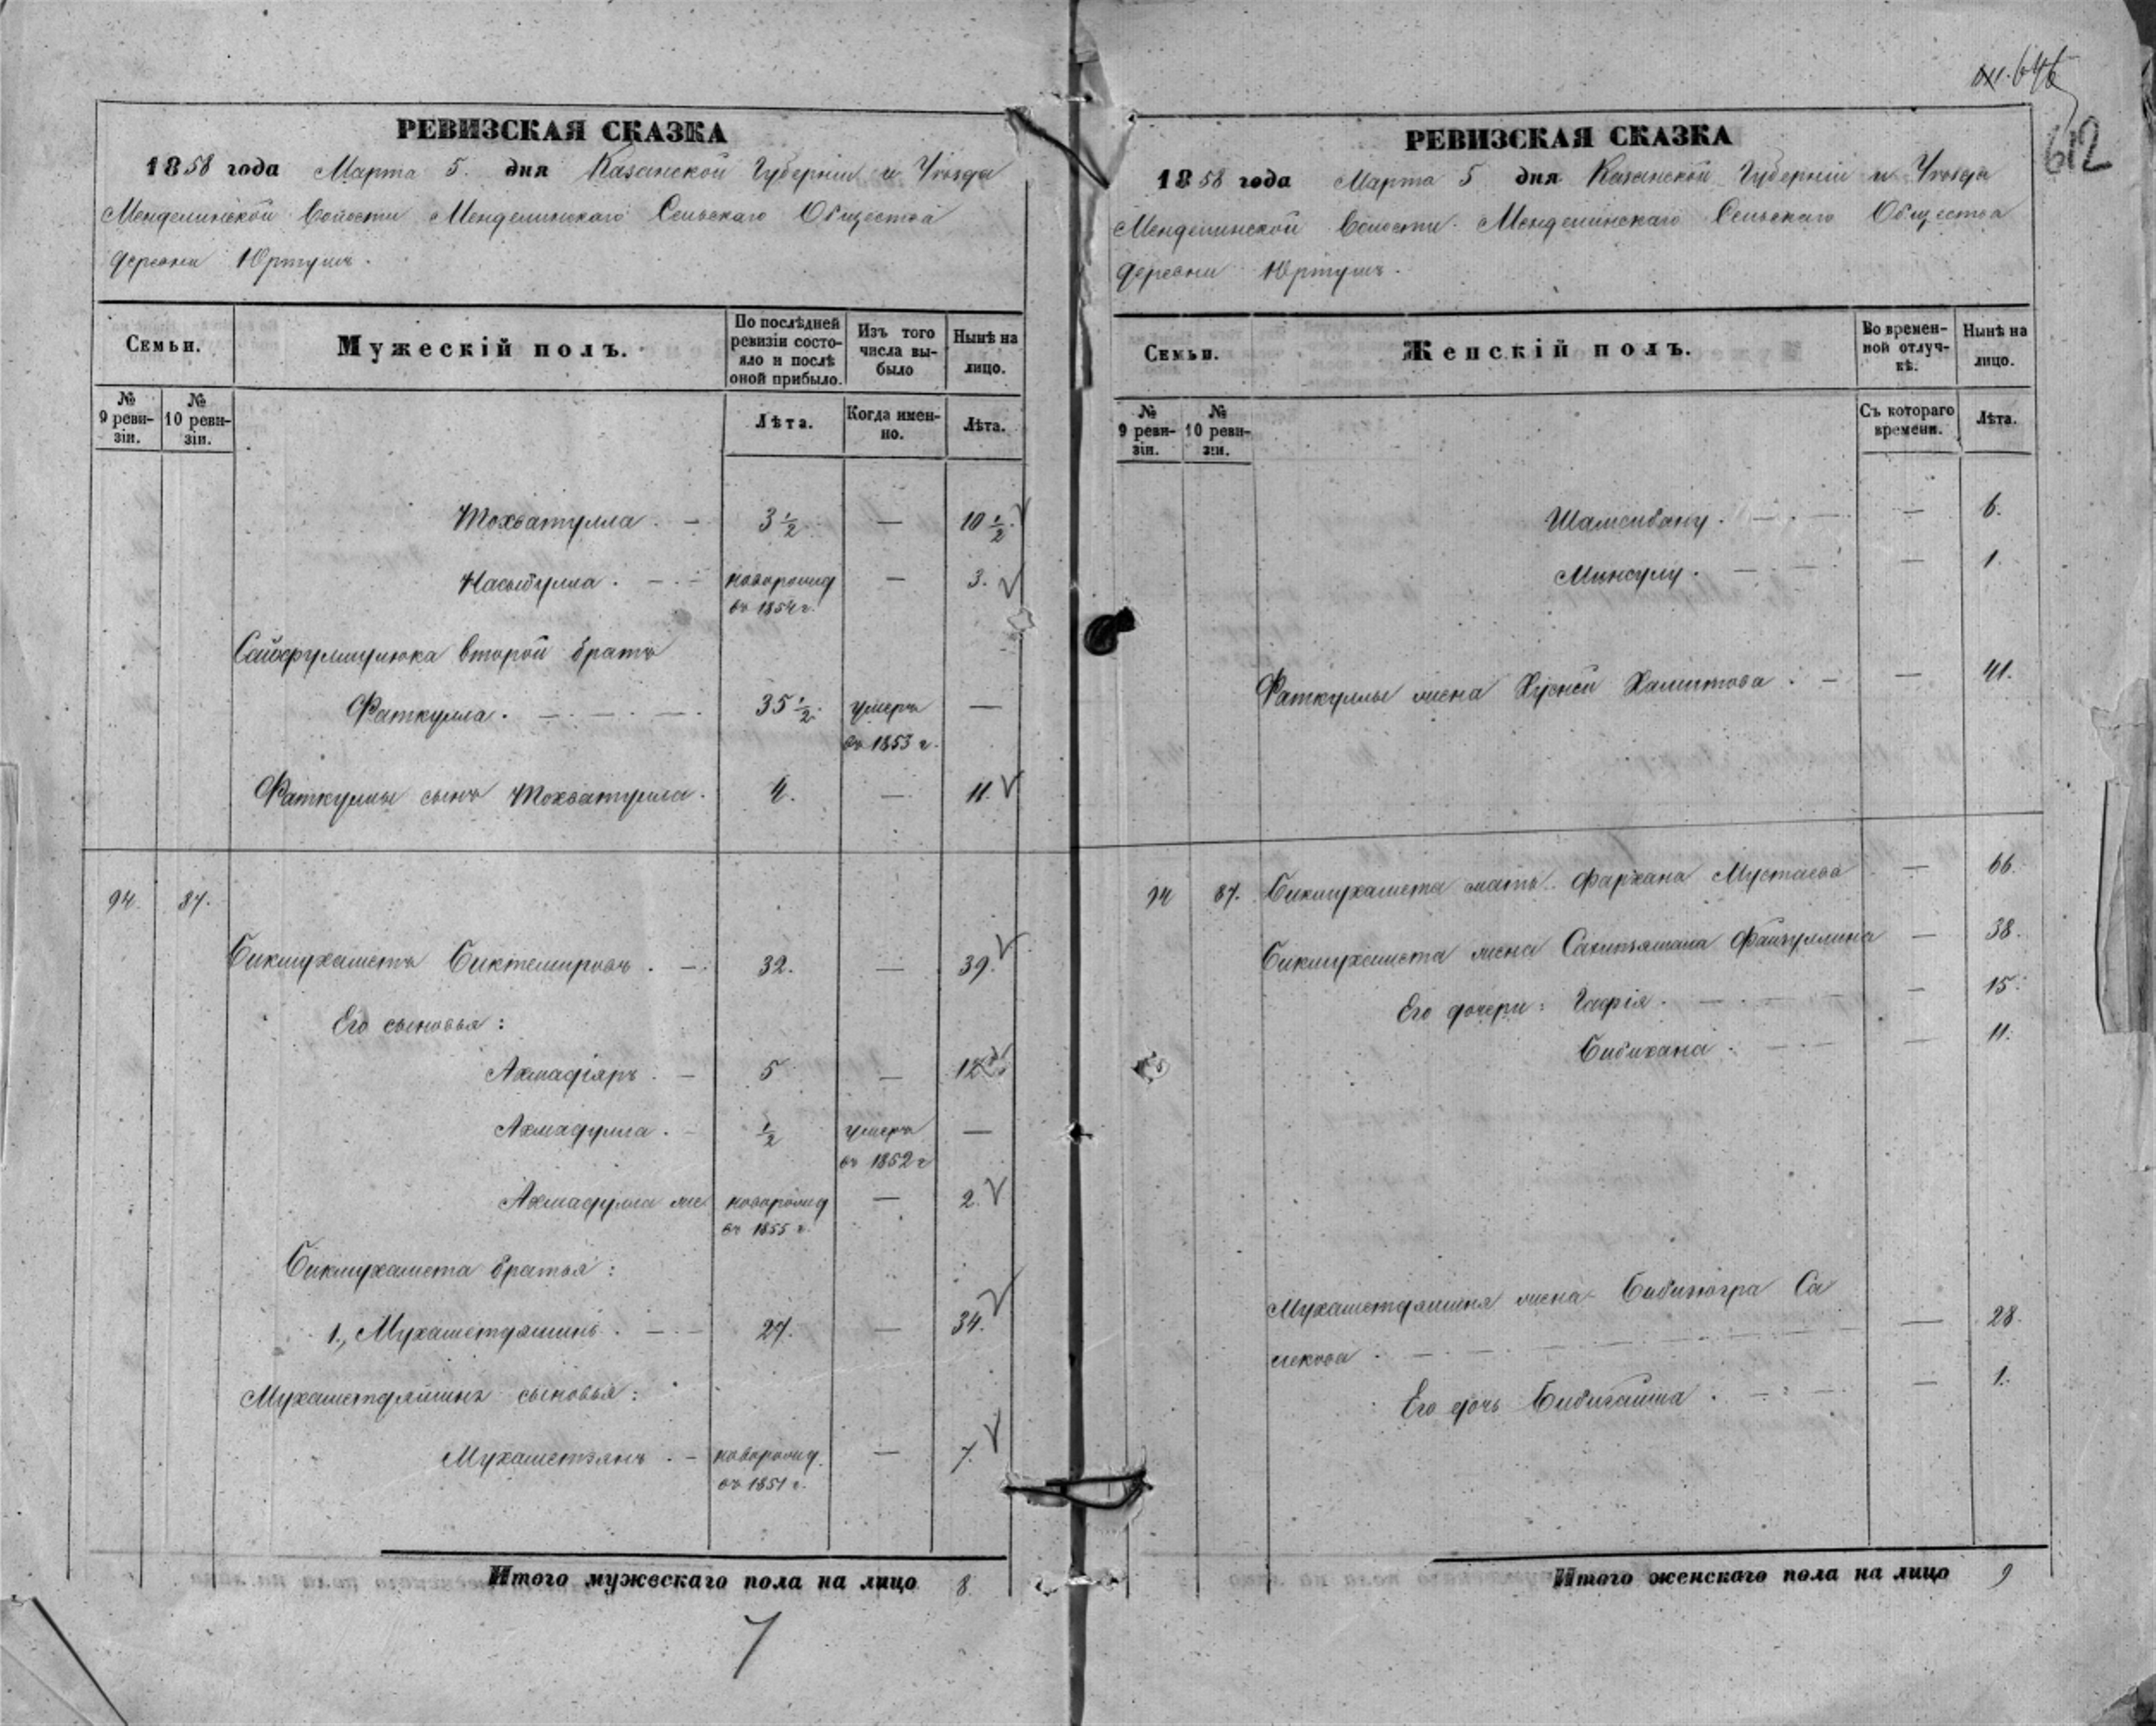 РЕВИЗСКАЯ СКАЗКА
1858 года Марта 5. дня Казанской Губернiи и Уѣзда
Менделинской Волости Менделинскаго Сельскаго Общества
деревни Юртушъ.
Семьи.
Мужескій полъ.
По послѣдней ревизіи состояло и послѣ оной прибыло.
Изъ того числа выбыло
Нынѣ на лицо.
№ 9 ревизіи.
№ 10 ревизіи.
Лѣта.
Когда именно.
Лѣта.
Мохватулла. — 3 1/2 — 10 1/2.
Насыбулла. — новорожд въ 1854 г. — 3.
второй братъ
Фаткулла. — 35 1/2. умеръ въ 1853 г. —
Фаткуллы сынъ Мохватулла. 4. — 11.
94. 87.
Бикмухаметъ Биктемировъ. — 32. — 39.
Его сыновья:
Ахмадіяръ. — 5 — 12
Ахмадулла. — 1/2 умеръ въ 1852 г —
Ахмадулла же новорожд въ 1855 г. — 2.
Бикмухамета братья:
1., Мухаметдяминъ. — 27. — 34.
Мухаметдямина сыновья:
Мухаметзянъ. — новорожд. въ 1851 г. — 7.
Итого мужескаго пола на лицо 8.
7
612
РЕВИЗСКАЯ СКАЗКА
1858 года Марта 5 дня Казанской Губерніи и Уѣзда
Менделинской Волости. Менделинскаго Сельскаго Общества
деревни Юртушъ.
Семьи.
Женскій полъ.
Во временной отлучкѣ.
Нынѣ на лицо.
№ 9 ревизіи.
№ 10 ревизіи.
Съ котораго времени.
Лѣта.
Шамсибану. — — 6.
Минсулу. — — 1.
Фаткуллы жена Хуснси Халитова. — — 41.
94 87. Бикмухамета мать. Фархана Мустаева — 66.
Бикмухамета жена Файзуллина — 38.
Его дочери: Гафія. — — 15.
Бибихана. — — 11.
Мухаметдямина жена Бибизюгра Са
лекова. — — 28.
Его дочь Бибигайша. — — 1.
Итого женскаго пола на лицо 9